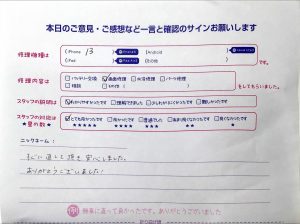 本日のご意見・ご感想など一言と確認のサインお願いします
修理機種は
iPhone 13
Android
iPad
その他
修理内容は
バッテリー交換 画面修理 水没修理 パーツ修理
相談 その他
をしてもらいました。
スタッフの説明は
わかりやすかったです 理解できました 少しわかりにくかったです 難しかったです
スタッフの対応は
★星の数★
とても良かったです 良かったです 普通でした あまり良くなかったです 良くなかったです
★★★★★ ★★★★ ★★★ ★★ ★
ニックネーム:
すぐに直して頂き安心しました。
ありがとうございました!
無事に直って良かったです。ありがとうございました